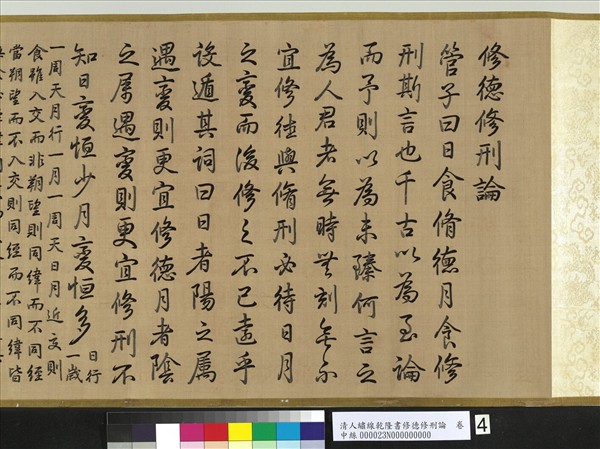 修德修刑論
管子曰日食脩德月食修
刑斯言也千古以為至論
而予則以為未臻何言之
為人君者無時無刻無不
宜修德與脩刑必待日月
之變而後修之不已遠乎
設遁其詞曰日者陽之屬
遇變則更宜修德月者陰
之屬遇變則更宜修刑不
知日變恒少月變恒多
日行
一歲
一周天月行一月一周天日月近交則
食雖入交而非朔望則同緯而不同經
當朔望而不入交則同經而不同緯皆
清人繡線乾隆書修德修刑論 卷
中絲000023N000000000
4